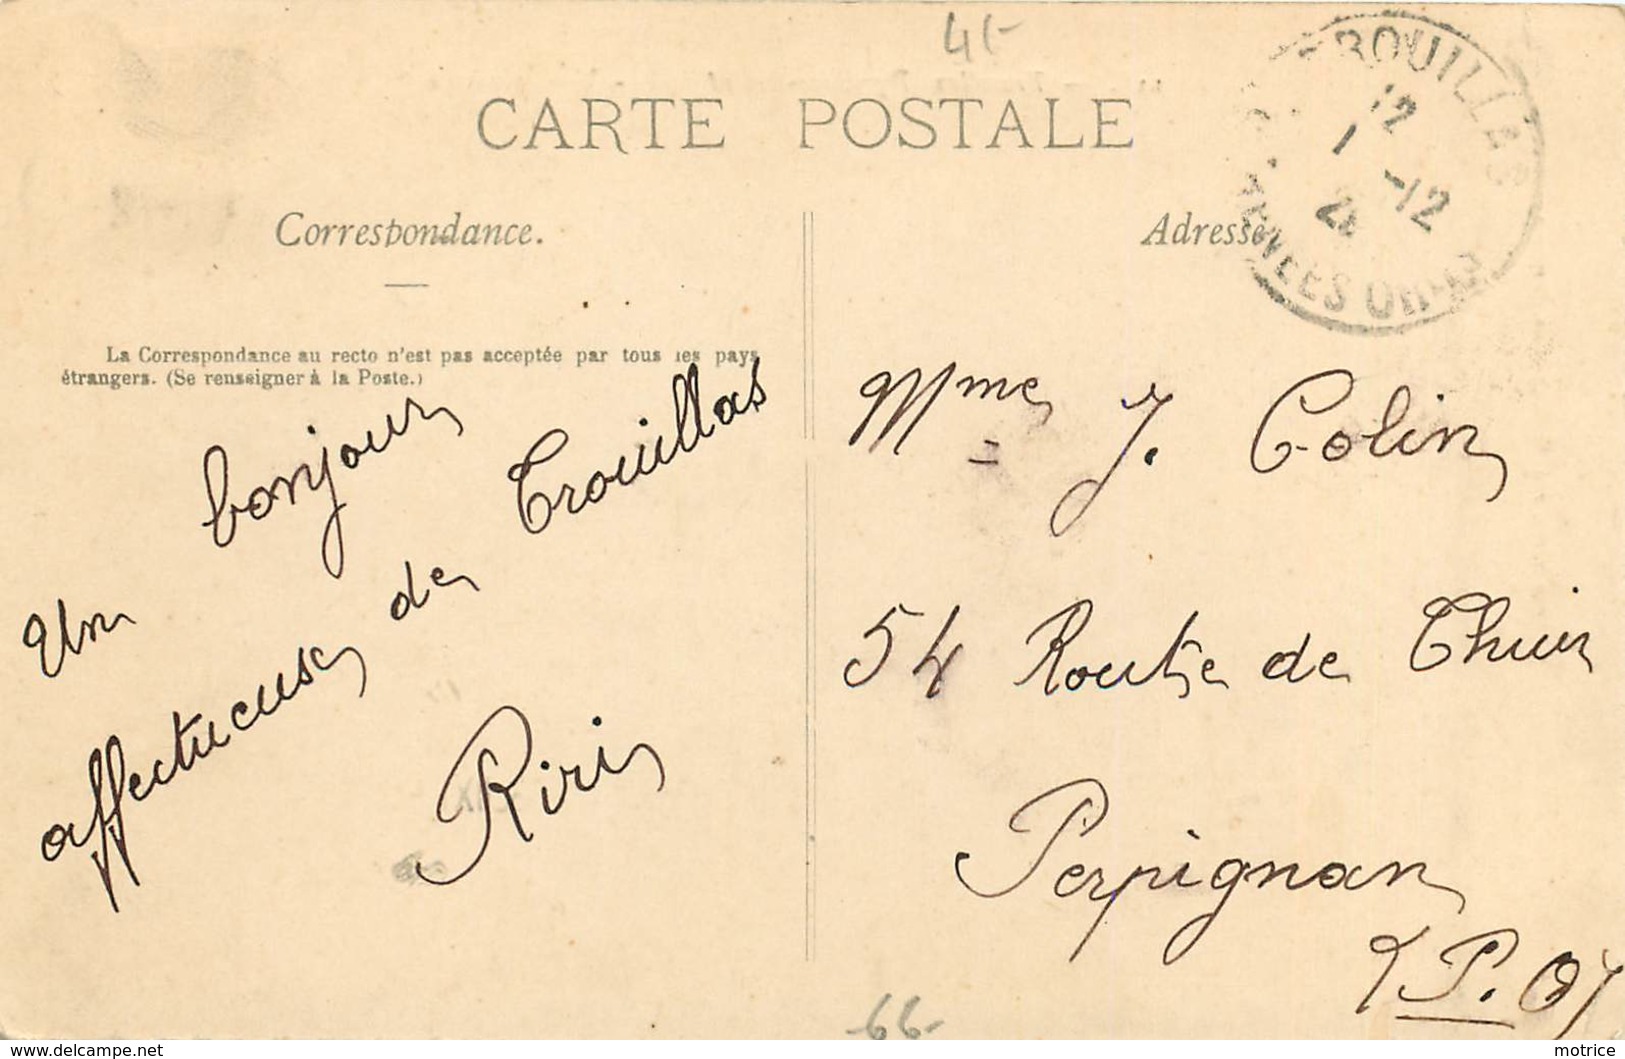 41-
CARTE POSTALE
Correspondance.
La Correspondance au recto n'est pas acceptée par tous les pays
étrangers. (Se renseigner à la Poste.)
Un bonjour
affectueuse de Trouillas
Riri
Adresse
Mme J. Colin
54 Route de Thuir
Perpignan
(P. O)
TROUILLAS
12
1 -12
PYRENEES ORles
-66-
motrice